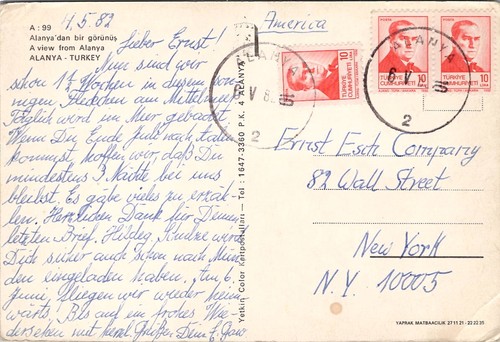 A : 99
Alanya'dan bir görünüş
A view from Alanya
ALANYA - TURKEY
4.5.82
Lieber Ernst!
Nun sind wir
schon 1½ Wochen in diesem sonnigen Fleckchen am Mittelmeer.
Täglich wird im Meer gebadet.
Wenn Du Ende Juli nach
kommst, hoffen wir, daß Du
mindestens 3 Nächte bei uns
bleibst. Es gäbe vieles zu erzäh-
len. Herzlichen Dank für Deinen
letzten Brief. Hildeg.
Dich sicher auch schon nach Mün-
den eingeladen haben. Am 6.
Juni fliegen wir wieder heim-
wärts. Bis auf ein frohes Wie-
dersehen mit herzl. Grüßen Dein
Yetkin Color Kartpostalları - Tel : 1647-3360 P.K. 4 ALANYA
America
ALANYA
6 V 82
2
ALANYA
6 V
2
10 LIRA
TÜRKİYE
CUMHURİYETİ
10 LIRA
TÜRKİYE
CUMHURİYETİ
10 LIRA
TÜRKİYE
CUMHURİYETİ
Ernst Esch Company
82 Wall Street
New York
N.Y. 10005
YAPRAK MATBAACILIK 27 11 21 - 22 32 35